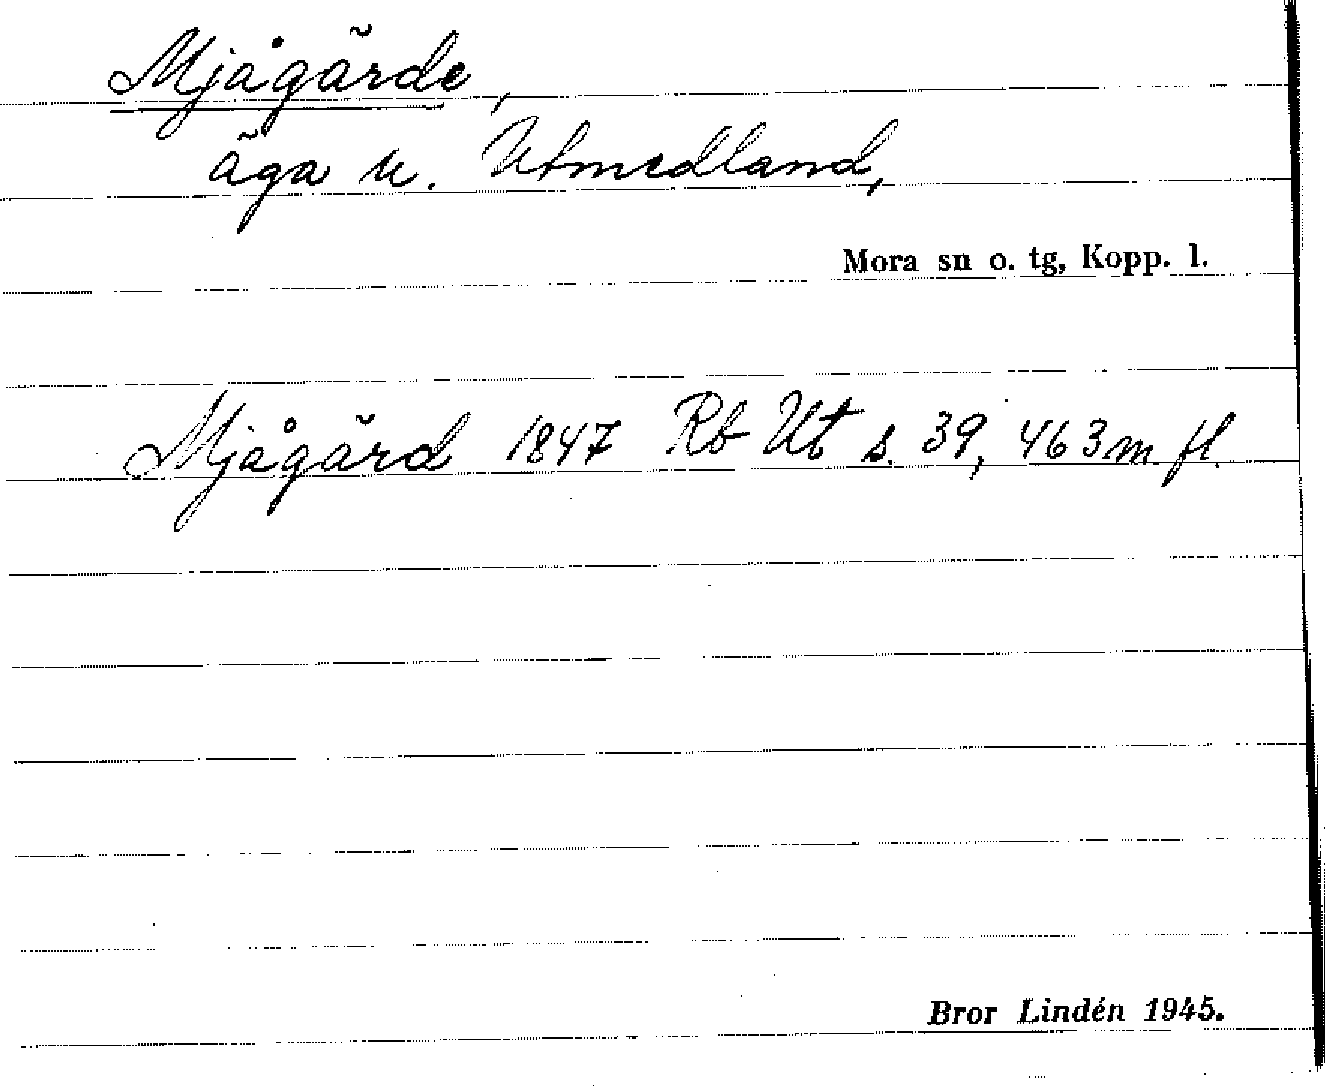 Mjågärde,
äga u. Utmedland,
Mora sn o. tg, Kopp. l.
Mjågärd 1847 Rb Ut s. 39, 463 m. fl.
Bror Lindén 1945.